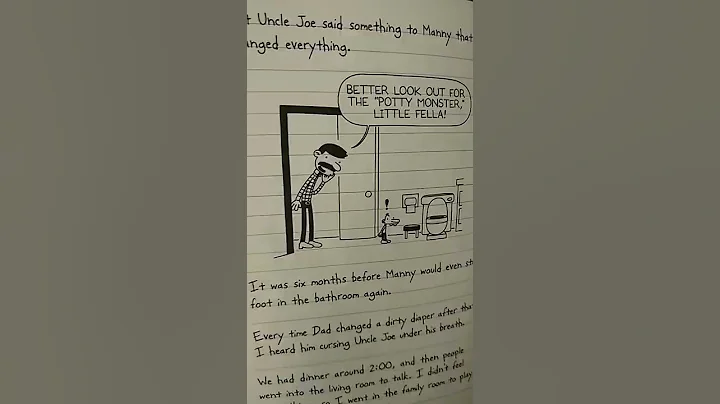 Uncle Joe said something to Manny that
everything.
BETTER LOOK OUT FOR
THE "POTTY MONSTER,"
LITTLE FELLA!
!
It was six months before Manny would even
foot in the bathroom again.
Every time Dad changed a dirty diaper after
I heard him cursing Uncle Joe under his breath.
We had dinner around 2:00, and then people
went into the living room to talk. I didn't feel
so I went in the family room to play